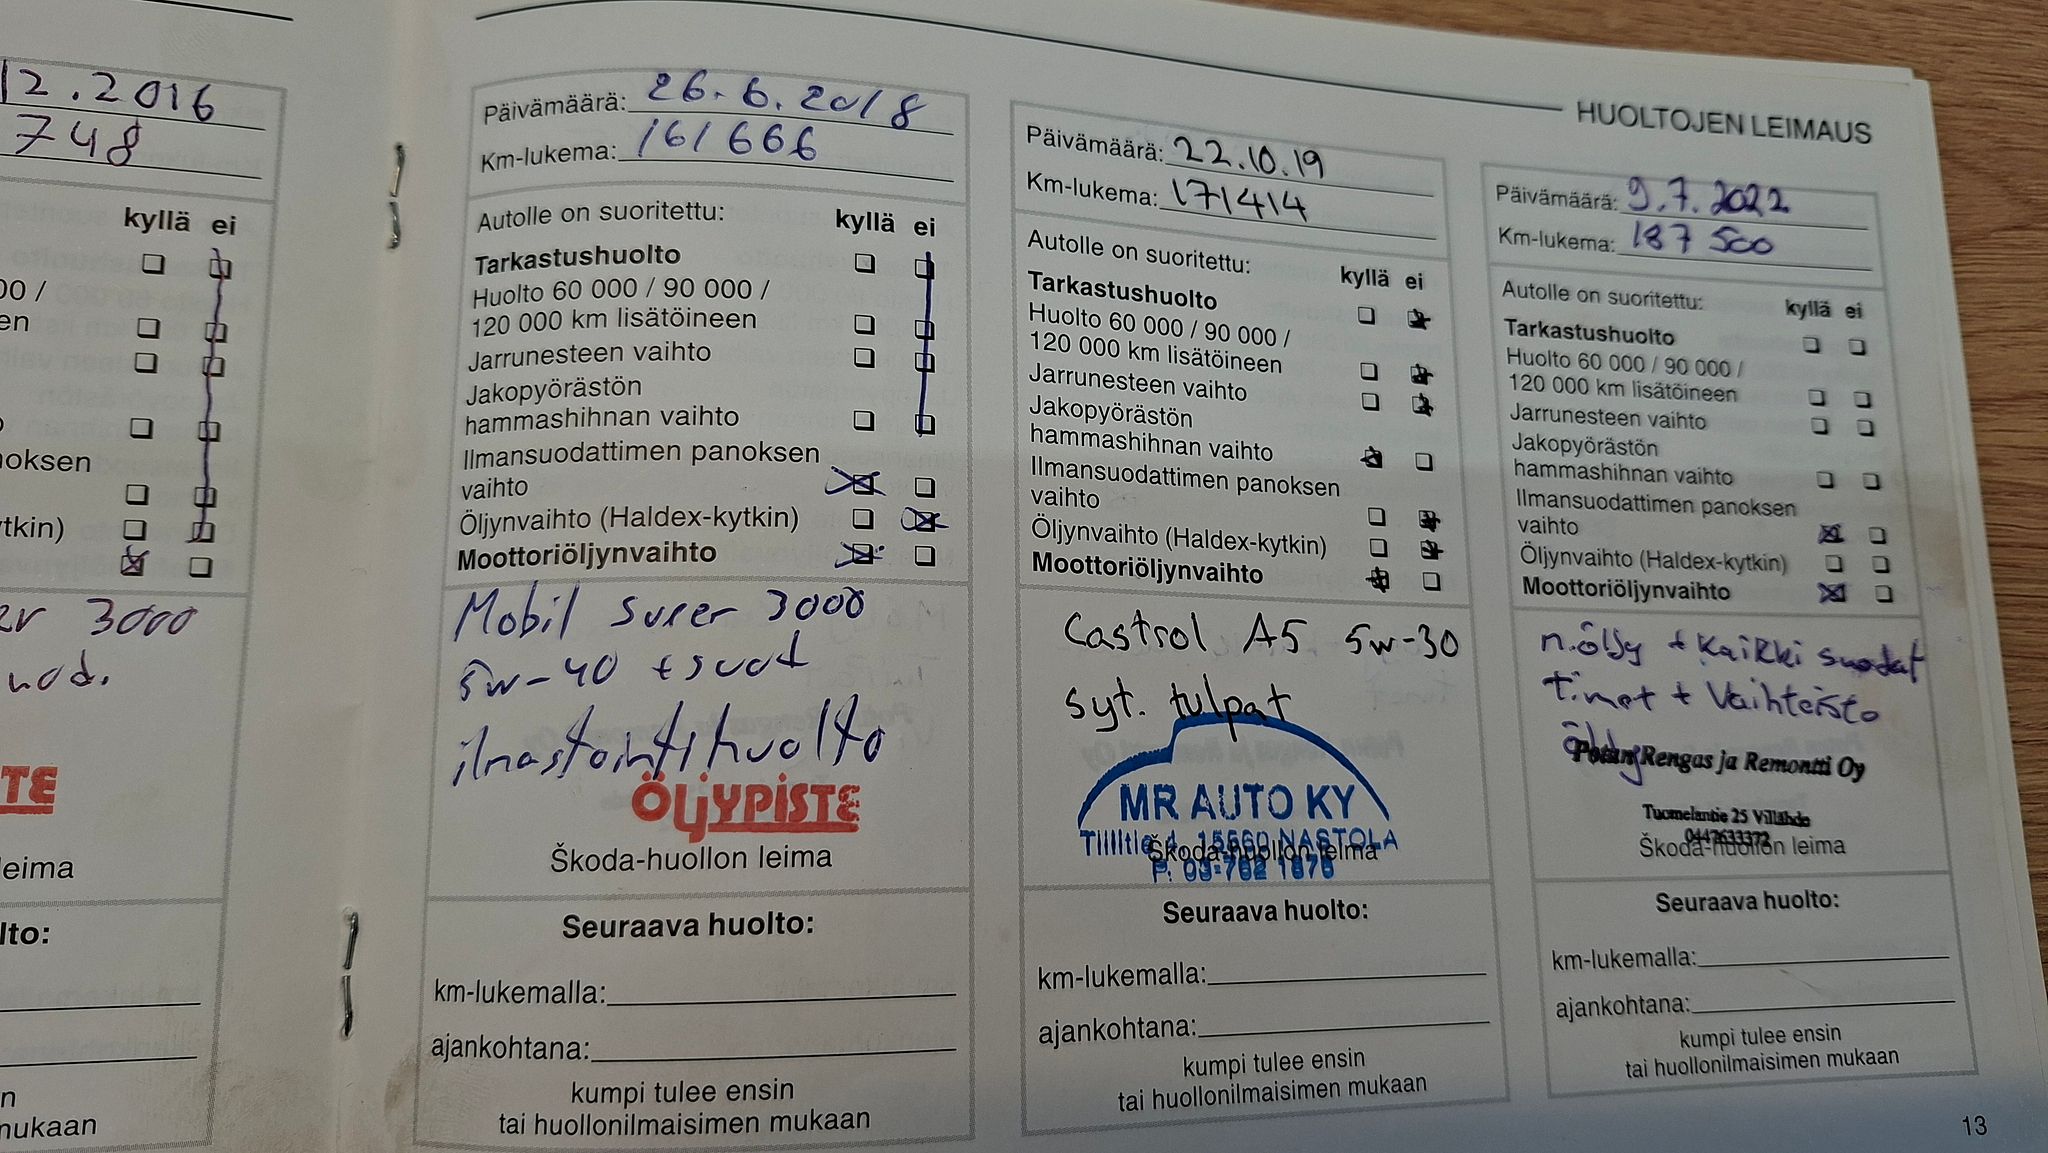 12.2016
748
kyllä ei
00 /
en
oksen
tkin)
3000
TE
leima
lto:
n
mukaan
Päivämäärä: 26.6.2018
Km-lukema: 161 666
Autolle on suoritettu: kyllä ei
Tarkastushuolto
Huolto 60 000 / 90 000 /
120 000 km lisätöineen
Jarrunesteen vaihto
Jakopyörästön
hammashihnan vaihto
Ilmansuodattimen panoksen
vaihto
Öljynvaihto (Haldex-kytkin)
Moottoriöljynvaihto
Mobil super 3000
5w-40 + suod
ilmastointihuolto
ÖLJYPISTE
Škoda-huollon leima
Seuraava huolto:
km-lukemalla:
ajankohtana:
kumpi tulee ensin
tai huollonilmaisimen mukaan
HUOLTOJEN LEIMAUS
Päivämäärä: 22.10.19
Km-lukema: 171414
Autolle on suoritettu: kyllä ei
Tarkastushuolto
Huolto 60 000 / 90 000 /
120 000 km lisätöineen
Jarrunesteen vaihto
Jakopyörästön
hammashihnan vaihto
Ilmansuodattimen panoksen
vaihto
Öljynvaihto (Haldex-kytkin)
Moottoriöljynvaihto
Castrol A5 5w-30
syt. tulpat
MR AUTO KY
15560 NASTOLA
Škoda-huollon leima
P. 03-762 1676
Seuraava huolto:
km-lukemalla:
ajankohtana:
kumpi tulee ensin
tai huollonilmaisimen mukaan
Päivämäärä: 9.7.2022
Km-lukema: 187 500
Autolle on suoritettu: kyllä ei
Tarkastushuolto
Huolto 60 000 / 90 000 /
120 000 km lisätöineen
Jarrunesteen vaihto
Jakopyörästön
hammashihnan vaihto
Ilmansuodattimen panoksen
vaihto
Öljynvaihto (Haldex-kytkin)
Moottoriöljynvaihto
m.öljy + kaikki suodat
timet + Vaihteisto
öljy
Potan Rengas ja Remontti Oy
Tuomelantie 25 Villähde
0442633372
Škoda-huollon leima
Seuraava huolto:
km-lukemalla:
ajankohtana:
kumpi tulee ensin
tai huollonilmaisimen mukaan
13